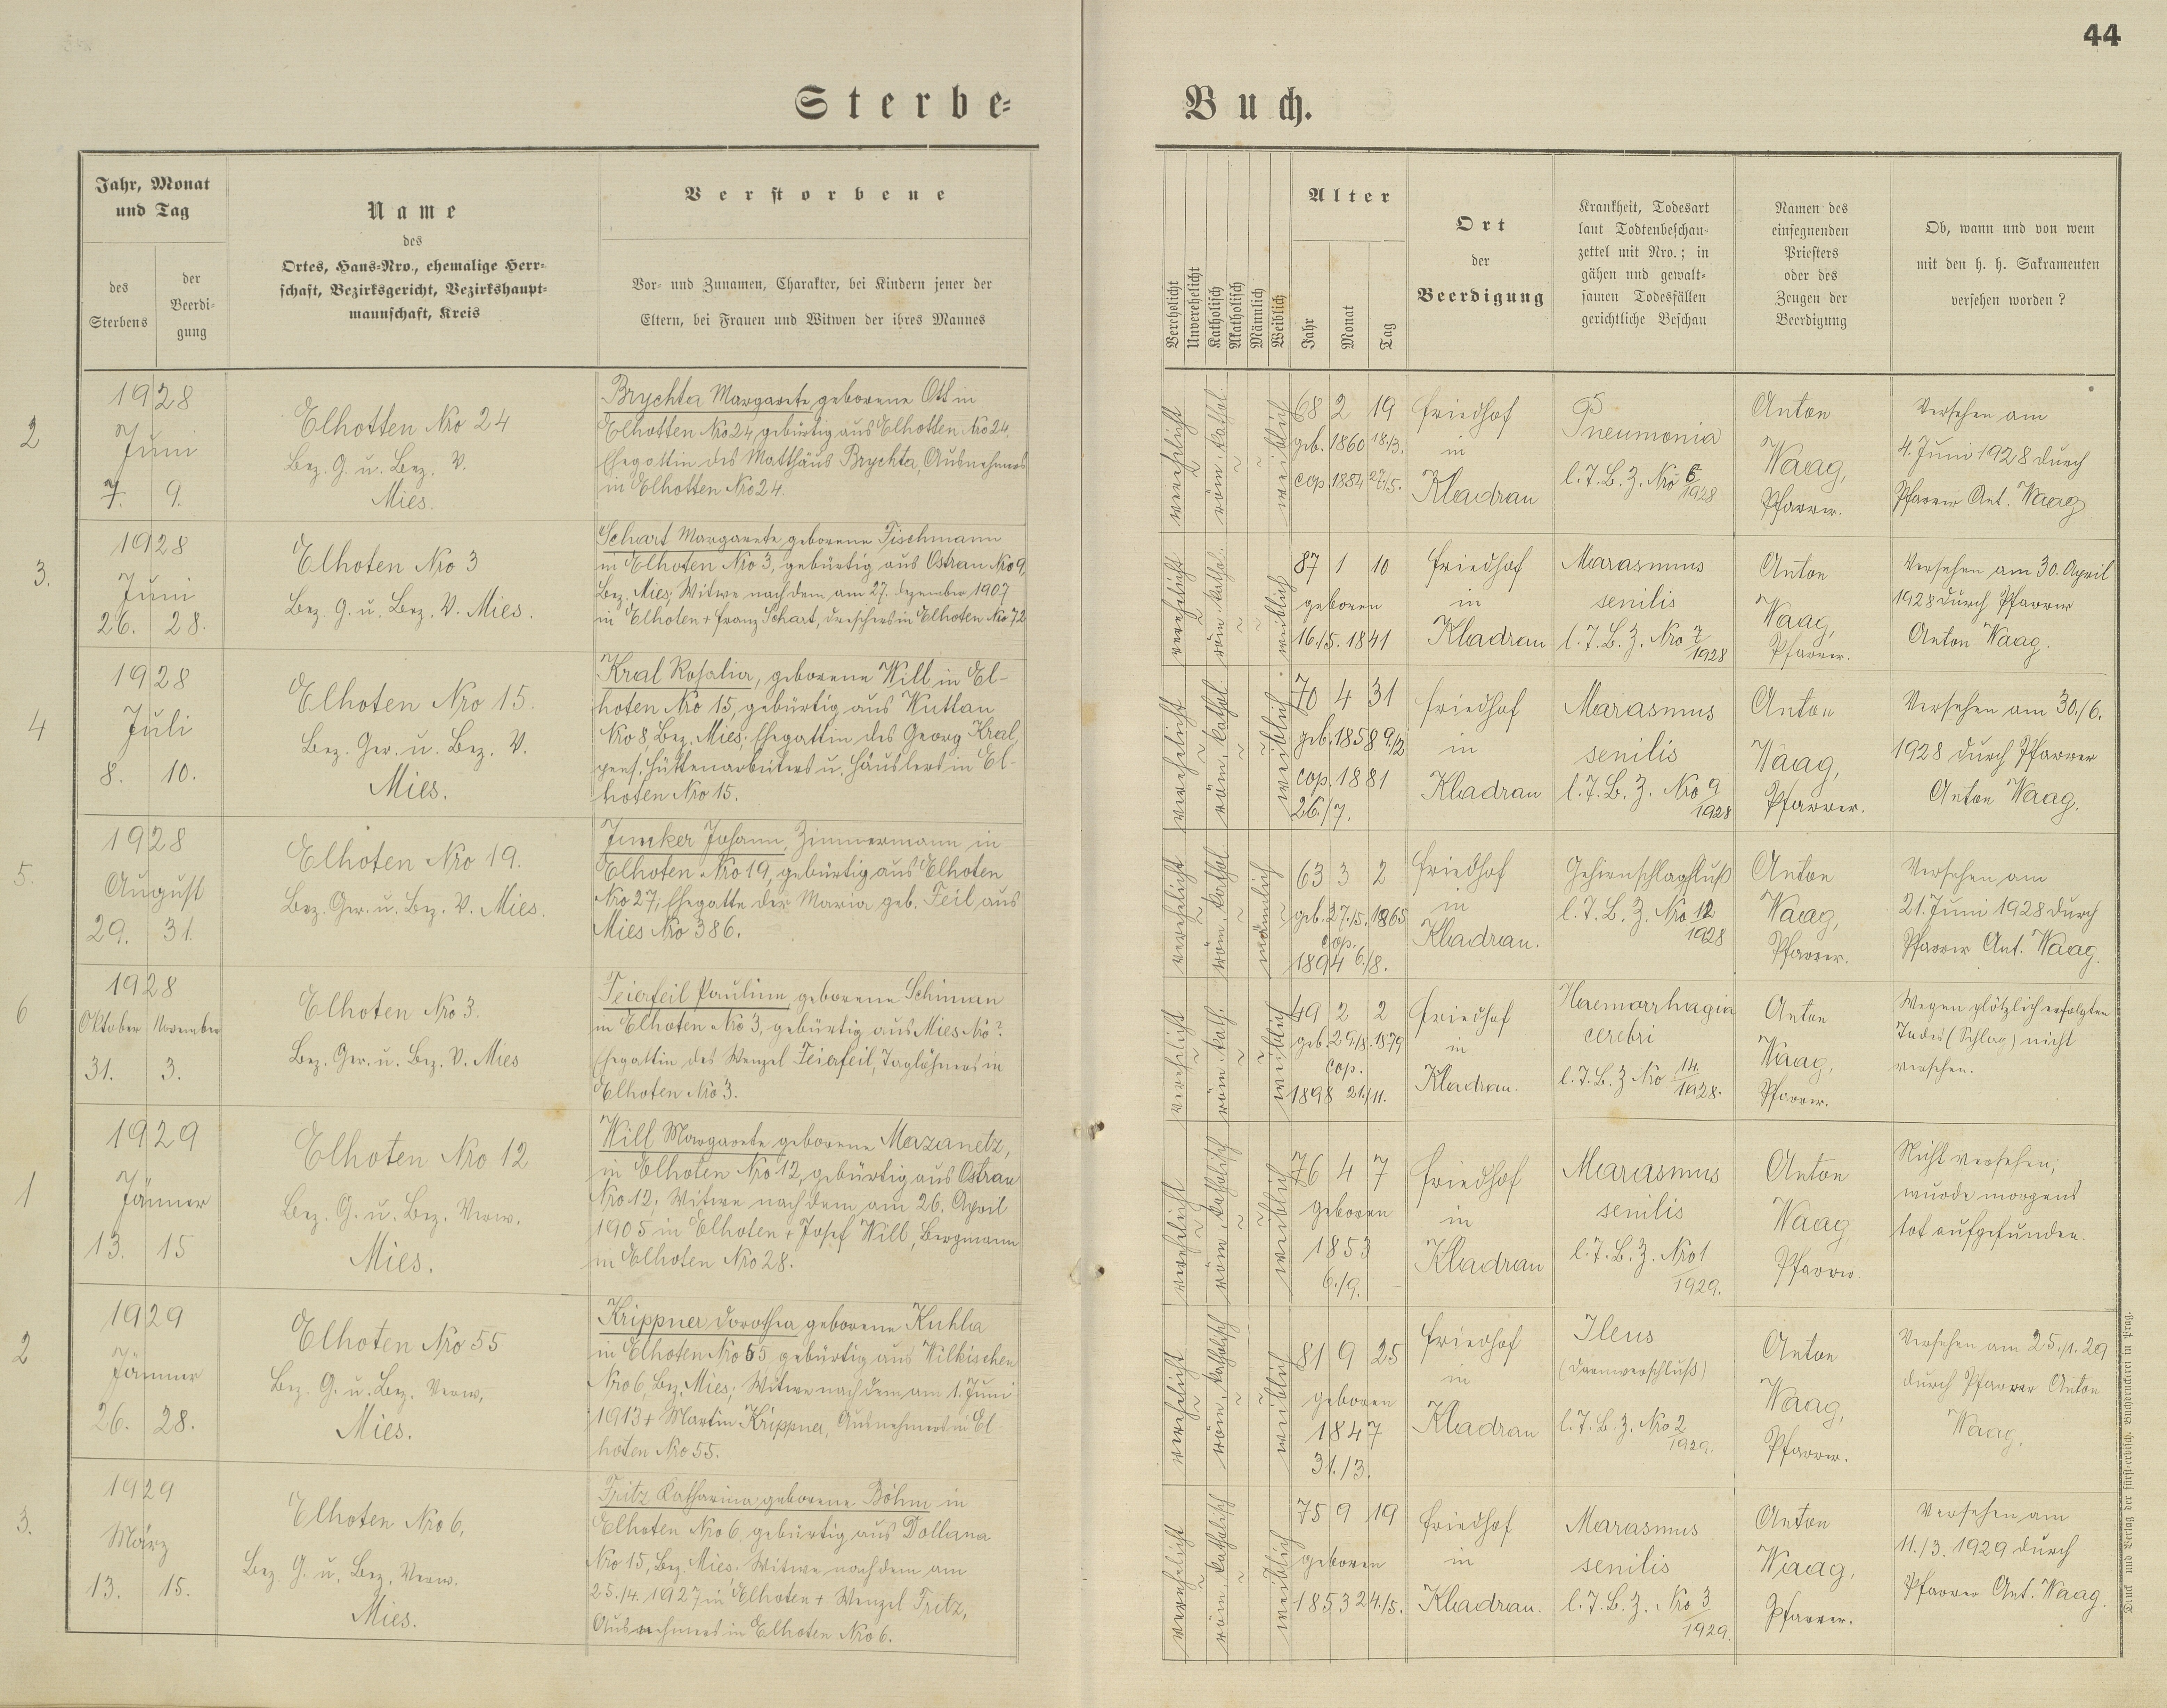 44
Sterbe-
Buch.
Jahr, Monat
und Tag
des
Sterbens
der
Beerdi-
gung
Name
des
Ortes, Haus-Nro., ehemalige Herr-
schaft, Bezirksgericht, Bezirkshaupt-
mannschaft, Kreis
Verstorbene
Vor- und Zunamen, Charakter, bei Kindern jener der
Eltern, bei Frauen und Witwen der ihres Mannes
Verehelicht
Unverehelicht
Katholisch
Akatholisch
Männlich
Weiblich
Alter
Jahr
Monat
Tag
Ort
der
Beerdigung
Krankheit, Todesart
laut Todtenbeschau-
zettel mit Nro.; in
gähen und gewalt-
samen Todesfällen
gerichtliche Beschau
Namen des
einsegnenden
Priesters
oder des
Zeugen der
Beerdigung
Ob, wann und von wem
mit den h. h. Sakramenten
versehen worden?
2
1928
Juni
7. 9.
Elhotten Nro 24
Bez. G. u. Bez. V.
Mies.
Brychta Margarete geborene Ott in
Elhotten Nro 24, gebürtig aus Elhotten Nro 24,
Ehegattin des Matthäus Brychta, Ausnehmers
in Elhotten Nro 24.
verehelicht
röm. kathol.
weiblich
68 2 19
geb. 1860 18./3.
cop. 1884 27./5.
Friedhof
in
Kladrau
Pneumonia
l. T. B. Z. Nro 6/1928
Anton
Waag,
Pfarrer.
Versehen am
4. Juni 1928 durch
Pfarrer Ant. Waag
3.
1928
Juni
26. 28.
Elhoten Nro 3
Bez. G. u. Bez. V. Mies.
Schart Margarete geborene Tischmann
in Elhoten Nro 3, gebürtig aus Ostrau Nro 9,
Bez. Mies; Witwe nach dem am 27. Dezember 1907
in Elhoten + Franz Schart, Dreschers in Elhoten Nro 72
verehelicht
röm. kathol.
weiblich
87 1 10
geboren
16./5. 1841
Friedhof
in
Kladrau
Marasmus
senilis
l. T. B. Z. Nro 7/1928
Anton
Waag,
Pfarrer.
Versehen am 30. April
1928 durch Pfarrer
Anton Waag.
4
1928
Juli
8. 10.
Elhoten Nro 15.
Bez. Ger. u. Bez. V.
Mies.
Kral Rosalia, geborene Will in El-
hoten Nro 15, gebürtig aus Wuttau
Nro 8, Bez. Mies; Ehegattin des Georg Kral,
pens. Hüttenarbeiters u. Häuslers in El-
hoten Nro 15.
verehelicht
röm. kathol.
weiblich
70 4 31
geb. 1858 9./2
cop. 1881
26./7.
Friedhof
in
Kladrau
Marasmus
senilis
l. T. B. Z. Nro 9/1928
Anton
Waag,
Pfarrer.
Versehen am 30./6.
1928 durch Pfarrer
Anton Waag.
5.
1928
August
29. 31.
Elhoten Nro 19.
Bez. Ger. u. Bez. V. Mies.
Junker Johann, Zimmermann in
Elhoten Nro 19, gebürtig aus Elhoten
Nro 27; Ehegatte der Maria geb. Feil aus
Mies Nro 386.
verehelicht
röm. kathol.
männlich
63 3 2
geb. 27./5. 1865
cop.
1894 6./8.
Friedhof
in
Kladrau.
Gehirnschlagfluß
l. T. B. Z. Nro 12/1928
Anton
Waag,
Pfarrer.
Versehen am
21. Juni 1928 durch
Pfarrer Ant. Waag.
6
1928
Oktober November
31. 3.
Elhoten Nro 3.
Bez. Ger. u. Bez. V. Mies
Feierfeil Pauline, geborene Schimon
in Elhoten Nro 3, gebürtig aus Mies Nro ?
Ehegattin des Wenzel Feierfeil, Taglöhners in
Elhoten Nro 3.
verehelicht
röm. kath.
weiblich
49 2 2
geb. 29./8. 1879
cop.
1898 21./11.
Friedhof
in
Kladrau.
Haemorrhagia
cerebri
l. T. B. Z Nro 14./1928.
Anton
Waag,
Pfarrer.
Wegen plötzlich erfolgten
Todes (Schlag) nicht
versehen.
1
1929
Jänner
13. 15
Elhoten Nro 12
Bez. G. u. Bez. Verw.
Mies.
Will Margarete geborene Mazanetz,
in Elhoten Nro 12, gebürtig aus Ostrau
Nro 12; Witwe nach dem am 26. April
1905 in Elhoten + Josef Will, Bergmann
in Elhoten Nro 28.
verehelicht
röm. katholisch
weiblich
76 4 7
geboren
1853
6./9.
Friedhof
in
Kladrau
Marasmus
senilis
l. T. B. Z. Nro 1/1929.
Anton
Waag
Pfarrer.
Nicht versehen;
wurde morgens
tot aufgefunden.
2
1929
Jänner
26. 28.
Elhoten Nro 55
Bez. G. u. Bez. Verw,
Mies.
Krippner Dorothea geborene Kuhla
in Elhoten Nro 55, gebürtig aus Wilkischen
Nro 6, Bez. Mies; Witwe nach dem am 1. Juni
1913 + Martin Krippner, Ausnehmers in El-
hoten Nro 55.
verehelicht
röm. katholisch
weiblich
81 9 25
geboren
1847
31./3.
Friedhof
in
Kladrau
Ileus
(Darmverschluß)
l. T. B. Z. Nro 2/1929.
Anton
Waag,
Pfarrer.
Versehen am 25./1. 29
durch Pfarrer Anton
Waag.
3.
1929
März
13. 15.
Elhoten Nro 6,
Bez. G. u. Bez. Verw.
Mies.
Fritz Katharina geborene Böhm in
Elhoten Nro 6, gebürtig aus Dollana
Nro 15, Bez. Mies; Witwe nach dem am
25./4. 1927 in Elhoten + Wenzel Fritz,
Ausnehmers in Elhoten Nro 6.
verehelicht
röm. katholisch
weiblich
75 9 19
geboren
1853 24./5.
Friedhof
in
Kladrau.
Marasmus
senilis
l. T. B. Z. Nro 3/1929.
Anton
Waag,
Pfarrer.
Versehen am
11./3. 1929 durch
Pfarrer Ant. Waag.
Druck und Verlag der fürst-erzbisch. Buchdruckerei in Prag.